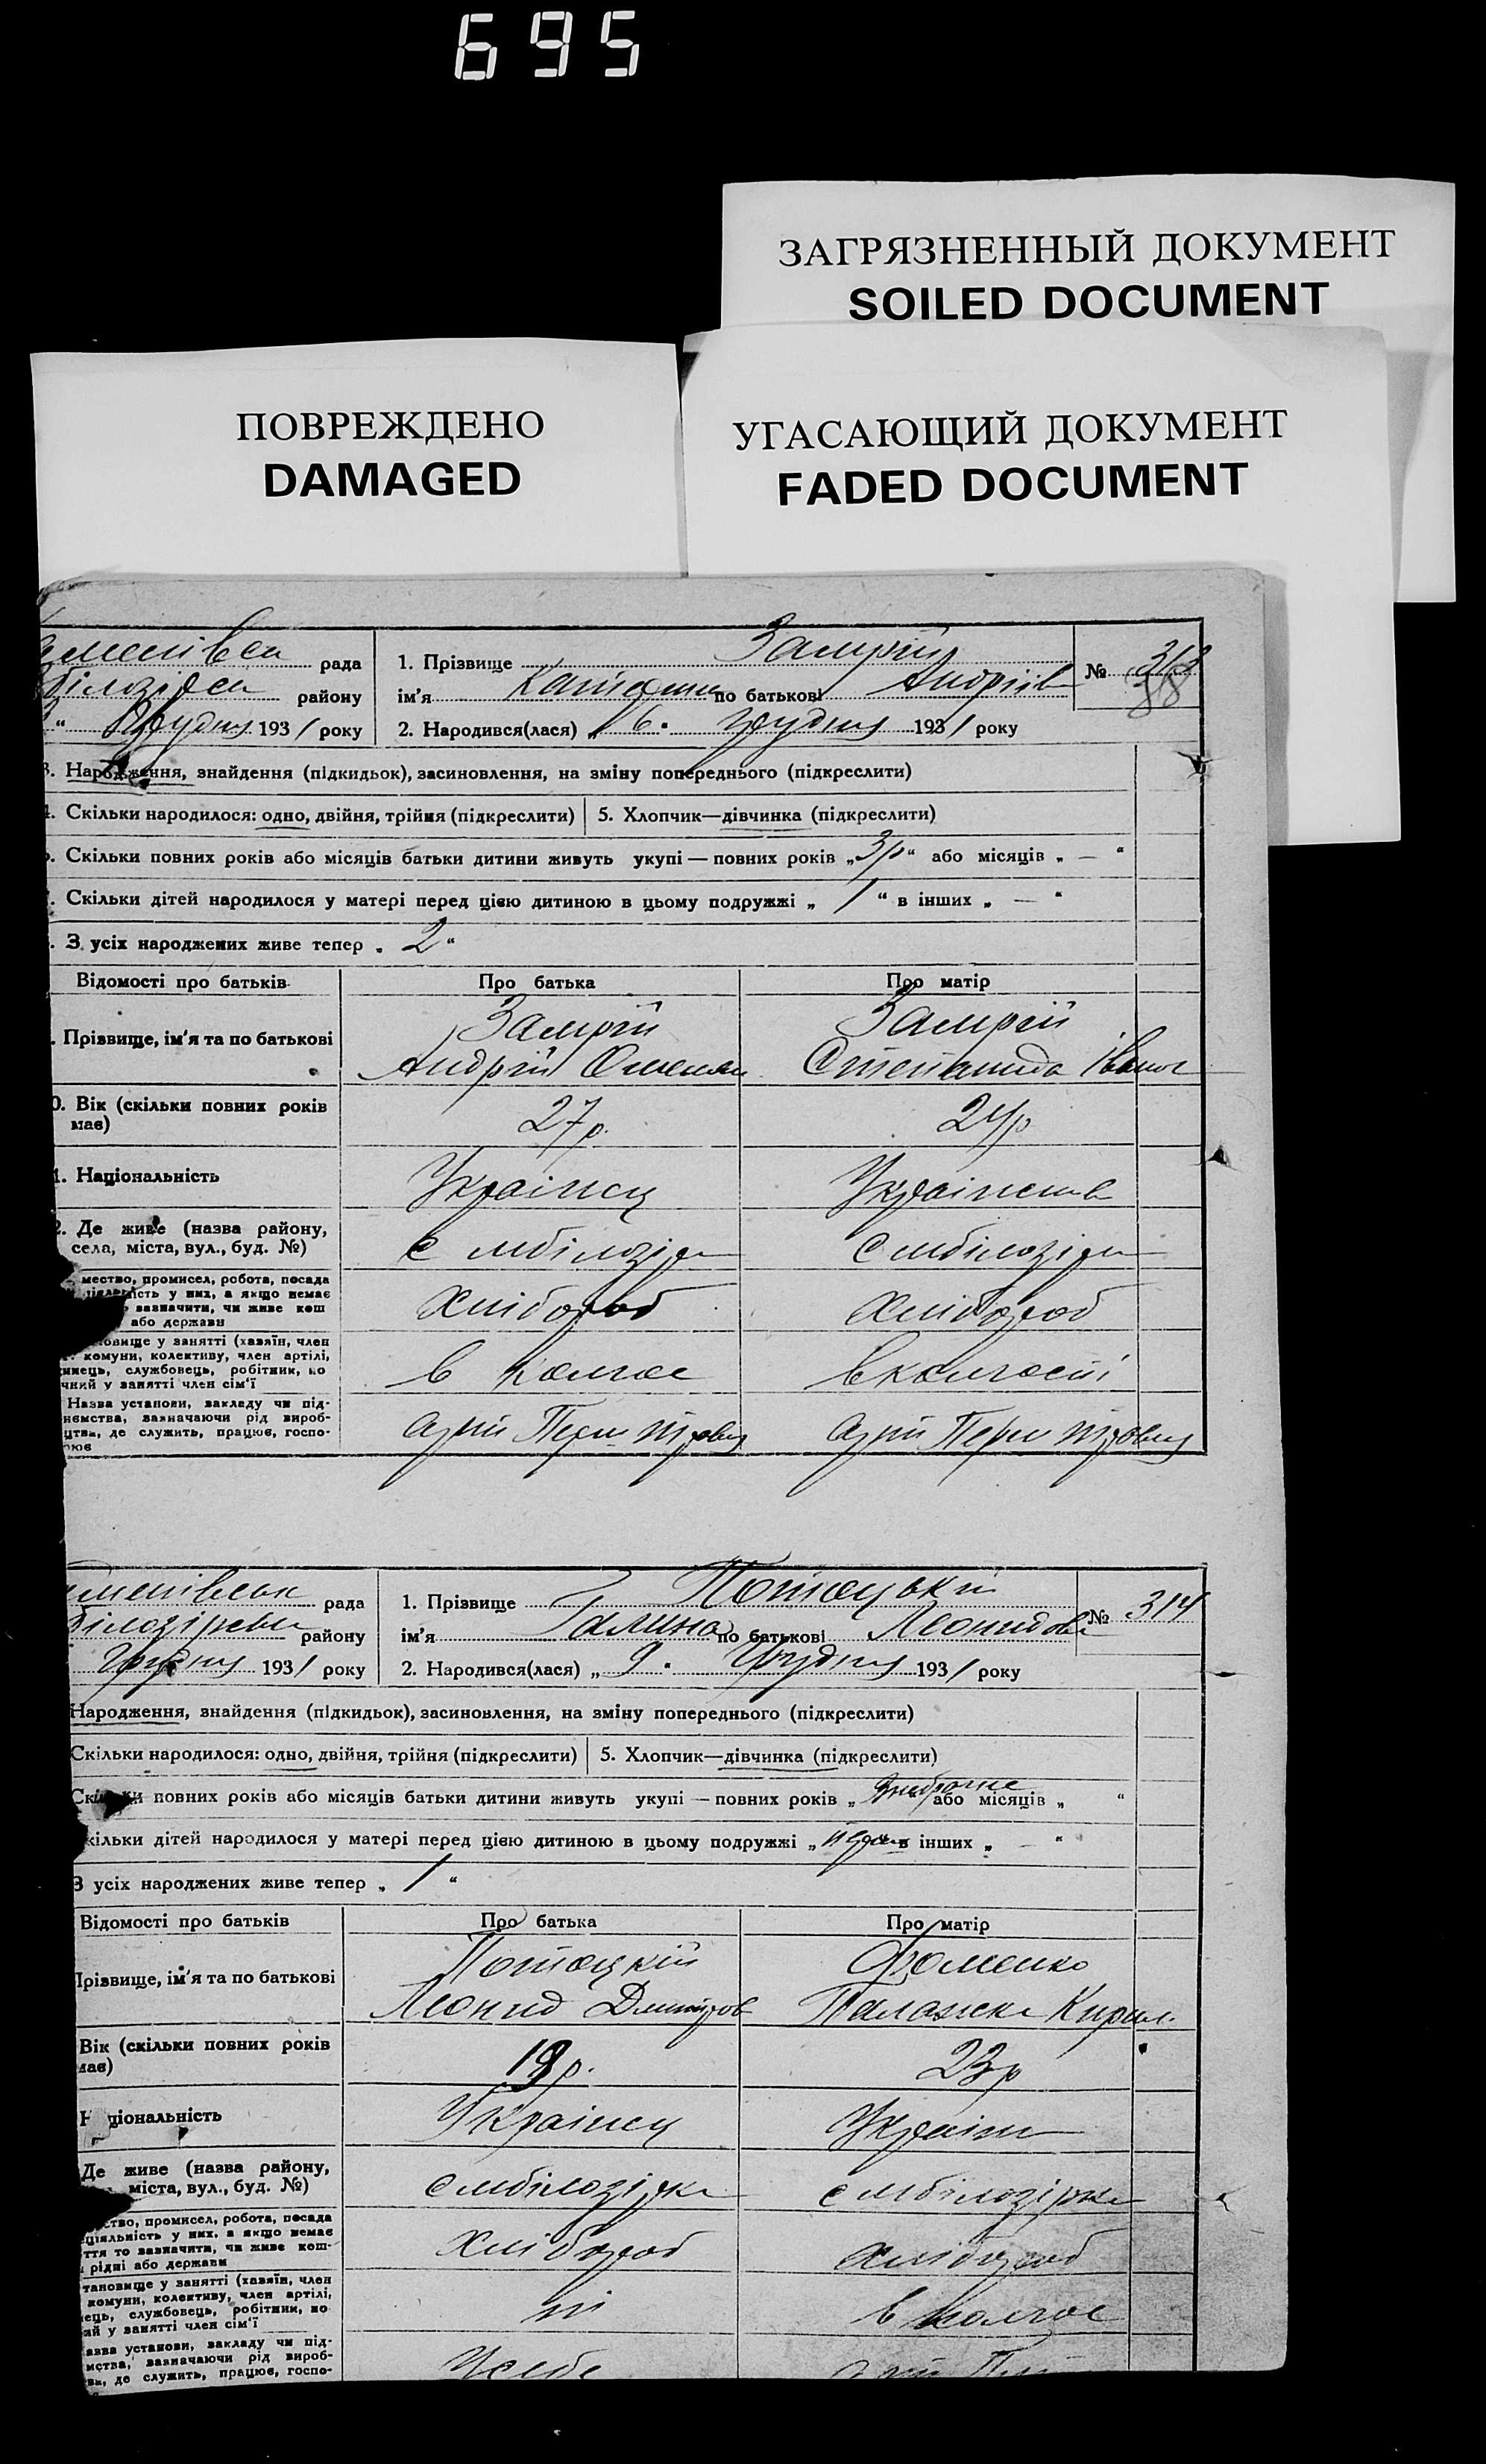 695
ЗАГРЯЗНЕННЫЙ ДОКУМЕНТ
SOILED DOCUMENT
ПОВРЕЖДЕНО
DAMAGED
УГАСАЮЩИЙ ДОКУМЕНТ
FADED DOCUMENT
рада
1. Прізвище Замрій
№
району
ім'я по батькові Андріїв
грудня 1931 року
2. Народився(лася) „6" грудня 1931 року
3. Народження, знайдення (підкидьок), засиновлення, на зміну попереднього (підкреслити)
4. Скільки народилося: одно, двійня, трійня (підкреслити)
5. Хлопчик—дівчинка (підкреслити)
Скільки повних років або місяців батьки дитини живуть укупі — повних років „3р" або місяців „ — "
Скільки дітей народилося у матері перед цією дитиною в цьому подружжі „ 1 " в інших „ — "
З усіх народжених живе тепер „ 2 "
Відомості про батьків
Про батька
Про матір
Прізвище, ім'я та по батькові
Замрій
Андрій
Замрій
Степанида Іванов
0. Вік (скільки повних років має)
27р.
24р
1. Національність
Українец
2. Де живе (назва району, села, міста, вул., буд. №)
с мбілозірк
с мбілозірк
мество, промисел, робота, посада
ціяльність у них, а якщо немає
зазначити, чи живе кош
або держави
хлібороб
хлібороб
овище у занятті (хазяїн, член
комуни, колективу, член артілі,
инець, службовець, робітник, по
чний у занятті член сім'ї
в колгос
в колгоспі
Назва установи, закладу чи під-
иємства, зазначаючи рід вироб-
цтва, де служить, працює, госпо-
рює
рада
1. Прізвище Потоцький
№ 314
району
ім'я Галина по батькові Леонидова
Грудня 1931 року
2. Народився(лася) „ 9 " Грудня 1931 року
Народження, знайдення (підкидьок), засиновлення, на зміну попереднього (підкреслити)
Скільки народилося: одно, двійня, трійня (підкреслити)
5. Хлопчик—дівчинка (підкреслити)
повних років або місяців батьки дитини живуть укупі — повних років „ або місяців „ "
кільки дітей народилося у матері перед цією дитиною в цьому подружжі „ в інших „ — "
З усіх народжених живе тепер „ 1 "
Відомості про батьків
Про батька
Про матір
Прізвище, ім'я та по батькові
Потоцкій
Леонид Дмитров
Фоменко
Палажка Кирил.
Вік (скільки повних років має)
р.
23р
Національність
Українец
Де живе (назва району,
міста, вул., буд. №)
с мбілозірка
с мбілозірка
ство, промисел, робота, посада
ціяльність у них, а якщо немає
ття то зазначити, чи живе кош-
рідні або держави
хлібороб
хлібороб
тановище у занятті (хазяїн, член
комуни, колективу, член артілі,
ець, службовець, робітник, по
ий у занятті член сім'ї
ні
в колгос
азва установи, закладу чи під-
мства, зазначаючи рід вироб-
ва, де служить, працює, госпо-